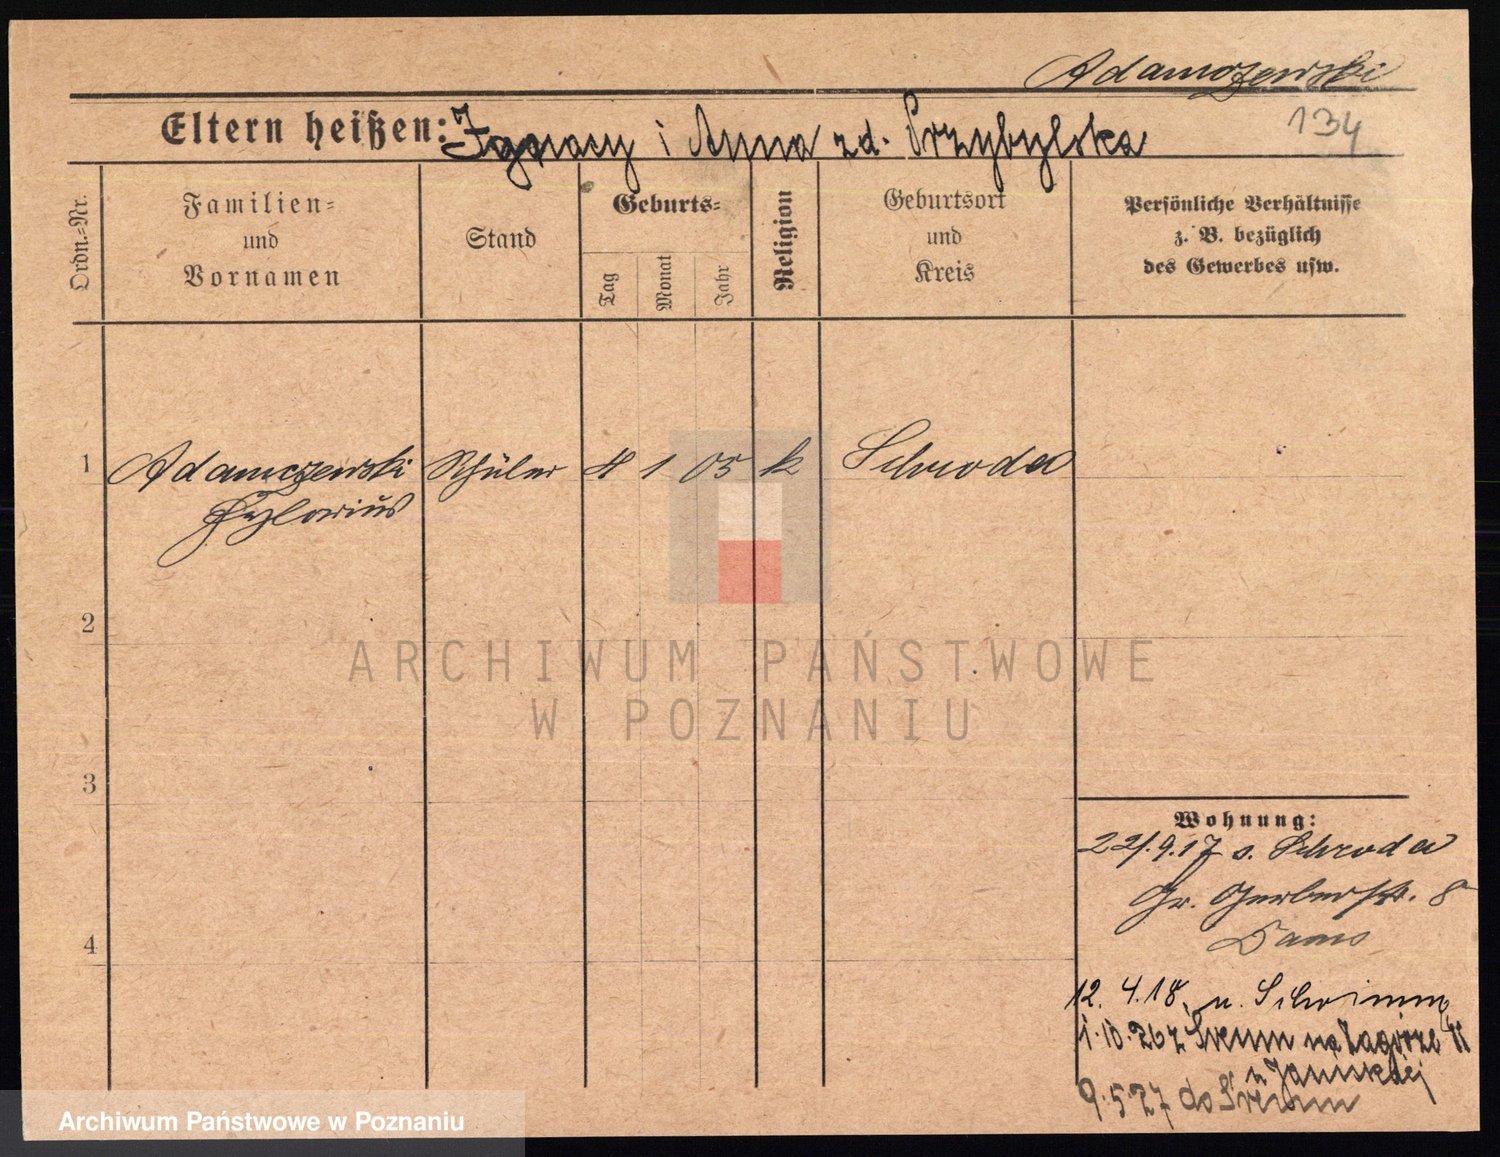 Adamczewski
134
Eltern heißen: Ignacy i Anna zd. Przybylska
Ordn.=Nr.
Familien=
und
Vornamen
Stand
Geburts=
Tag
Monat
Jahr
Religion
Geburtsort
und
Kreis
Persönliche Verhältnisse
z. B. bezüglich
des Gewerbes usw.
1 Adamczewski Schüler 4 1 05 k Schroda
2
3
4
Wohnung:
22/.9.17 v. Schroda
Gr. Gerberstr. 8
12. 4.18. n. Schrimm
Śrem na Zagórze
9.5.27 do Śrem
ARCHIWUM PAŃSTWOWE
W POZNANIU
Archiwum Państwowe w Poznaniu